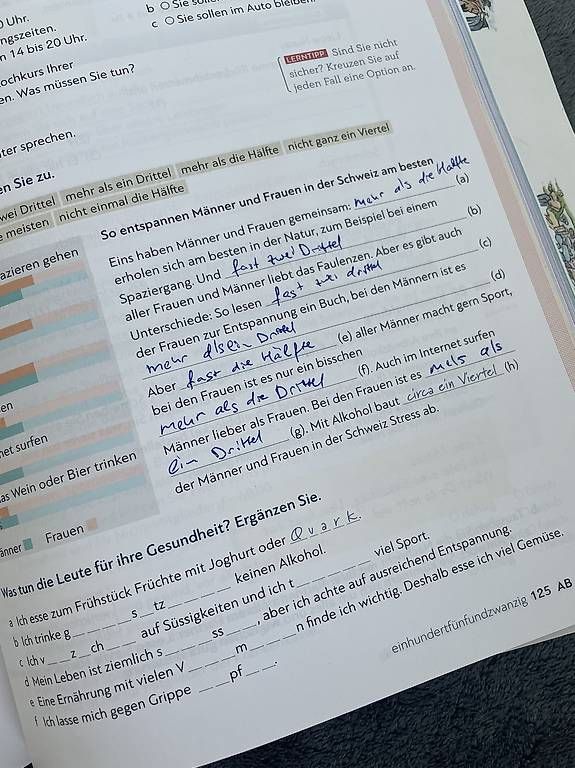 b O Sie sollen
c O Sie sollen im Auto bleiben.
0 Uhr.
ngszeiten.
n 14 bis 20 Uhr.
ochkurs Ihrer
en. Was müssen Sie tun?
LERNTIPP Sind Sie nicht
sicher? Kreuzen Sie auf
jeden Fall eine Option an.
ter sprechen.
en Sie zu.
wei Drittel mehr als ein Drittel mehr als die Hälfte nicht ganz ein Viertel
e meisten nicht einmal die Hälfte
So entspannen Männer und Frauen in der Schweiz am besten
Eins haben Männer und Frauen gemeinsam: mehr als die Hälfte (a)
erholen sich am besten in der Natur, zum Beispiel bei einem
Spaziergang. Und fast zwei Drittel (b)
aller Frauen und Männer liebt das Faulenzen. Aber es gibt auch
Unterschiede: So lesen fast zwei drittel (c)
der Frauen zur Entspannung ein Buch, bei den Männern ist es
mehr als ein Drittel (d)
Aber fast die Hälfte (e) aller Männer macht gern Sport,
bei den Frauen ist es nur ein bisschen
mehr als die Drittel (f). Auch im Internet surfen
Männer lieber als Frauen. Bei den Frauen ist es mels als
ein Drittel (g). Mit Alkohol baut circa ein Viertel (h)
der Männer und Frauen in der Schweiz Stress ab.
azieren gehen
en
net surfen
as Wein oder Bier trinken
änner Frauen
Was tun die Leute für ihre Gesundheit? Ergänzen Sie.
a Ich esse zum Frühstück Früchte mit Joghurt oder Quark.
b Ich trinke g___s__tz___ keinen Alkohol.
c Ich v___z__ch___ auf Süssigkeiten und ich t___ viel Sport.
d Mein Leben ist ziemlich s___ss___, aber ich achte auf ausreichend Entspannung.
e Eine Ernährung mit vielen V___m___n finde ich wichtig. Deshalb esse ich viel Gemüse.
f Ich lasse mich gegen Grippe ___pf___.
einhundertfünfundzwanzig 125 AB